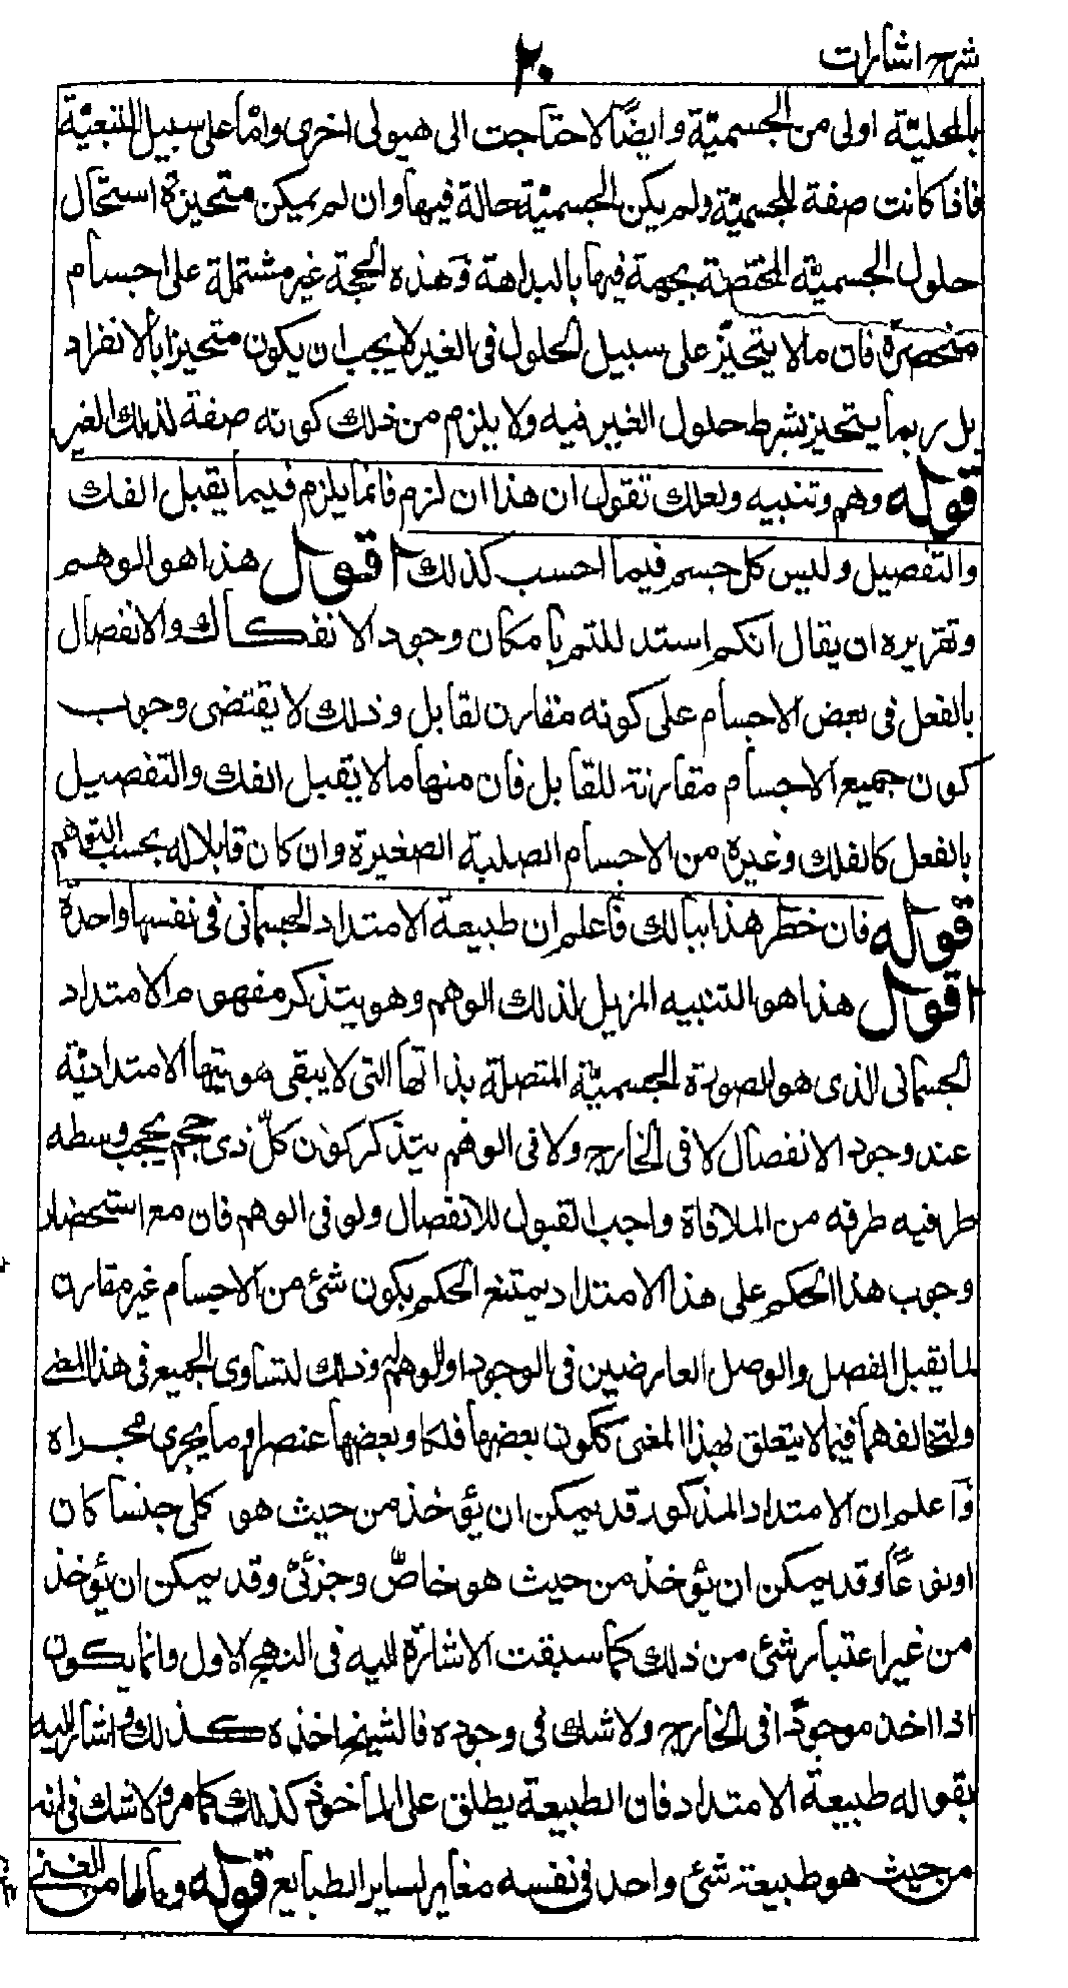 شرح اشارات
٢٠
بالمحلیّة اولی من الجسمیّة وایضًا لاحتاجت الی هیولی اخری وامّا علی سبیل التبعیّة
فاذا کانت صفة للجسمیّة ولم یکن الجسمیّة حالة فیها وان لم یکن متحیزة استحال
حلول الجسمیّة المختصّة بجهة فیها بالبداهة وهذه الحجة غیر مشتملة علی اجسام
منحصرة فان ما لا یتحیّز علی سبیل الحلول فی الغیر لا یجب ان یکون متحیزا بالانفراد
بل ربما یتحیز بشرط حلول الغیر فیه ولا یلزم من ذلك کونه صفة لذلك الغیر
قوله وهم وتنبیه ولعلك تقول ان هذا ان لزم فانما یلزم فیما یقبل الفك
والتفصیل ولیس کل جسم فیما احسب کذلك اقول هذا هو الوهم
وتقریره ان یقال انکم استدللتم بامکان وجود الانفکاك والانفصال
بالفعل فی بعض الاجسام علی کونه مقارن لقابل وذلك لا یقتضی وجوب
کون جمیع الاجسام مقارنة للقابل فان منها ما لا یقبل الفك والتفصیل
بالفعل کالفلك وغیره من الاجسام الصلبة الصغیرة وان کان قابلا له بحسب التوهم
قوله فان خطر هذا ببالك فاعلم ان طبیعة الامتداد الجسمانی فی نفسها واحدة
اقول هذا هو التنبیه المزیل لذلك الوهم وهو بتذکر مفهوم الامتداد
الجسمانی الذی هو الصورة الجسمیّة المتصلة بذاتها التی لا یبقی هویتها الامتدادیّة
عند وجود الانفصال لا فی الخارج ولا فی الوهم بتذکر کون کلّ ذی حجم یحجب وسطه
طرفیه طرفه من الملاقاة واجب القبول للانفصال ولو فی الوهم فان مع استحضار
وجوب هذا الحکم علی هذا الامتداد یمتنع الحکم بکون شئ من الاجسام غیر مقارن
لما یقبل الفصل والوصل العارضین فی الوجود او الوهم وذلك لتساوی الجمیع فی هذا المعنی
ولتخالفهما فیما لا یتعلق بهذا المعنی ککون بعضها فلکا وبعضها عنصرا وما یجری مجراه
واعلم ان الامتداد المذکور قد یمکن ان یؤخذ من حیث هو کلی جنسا کان
او نوعًا وقد یمکن ان یؤخذ من حیث هو خاصّ وجزئیّ وقد یمکن ان یؤخذ
من غیر اعتبار شئ من ذلك کما سبقت الاشارة الیه فی النهج الاول وانما یکون
اذا اخذ موجودًا فی الخارج ولا شك فی وجوده فالشیخ اخذه کذلك واشار الیه
بقوله طبیعة الامتداد فان الطبیعة یطلق علی المأخوذ کذلك کما مر ولا شك فی انه
من حیث هو طبیعة شئ واحد فی نفسه مغایر لسایر الطبایع قوله وما لها من الغنی